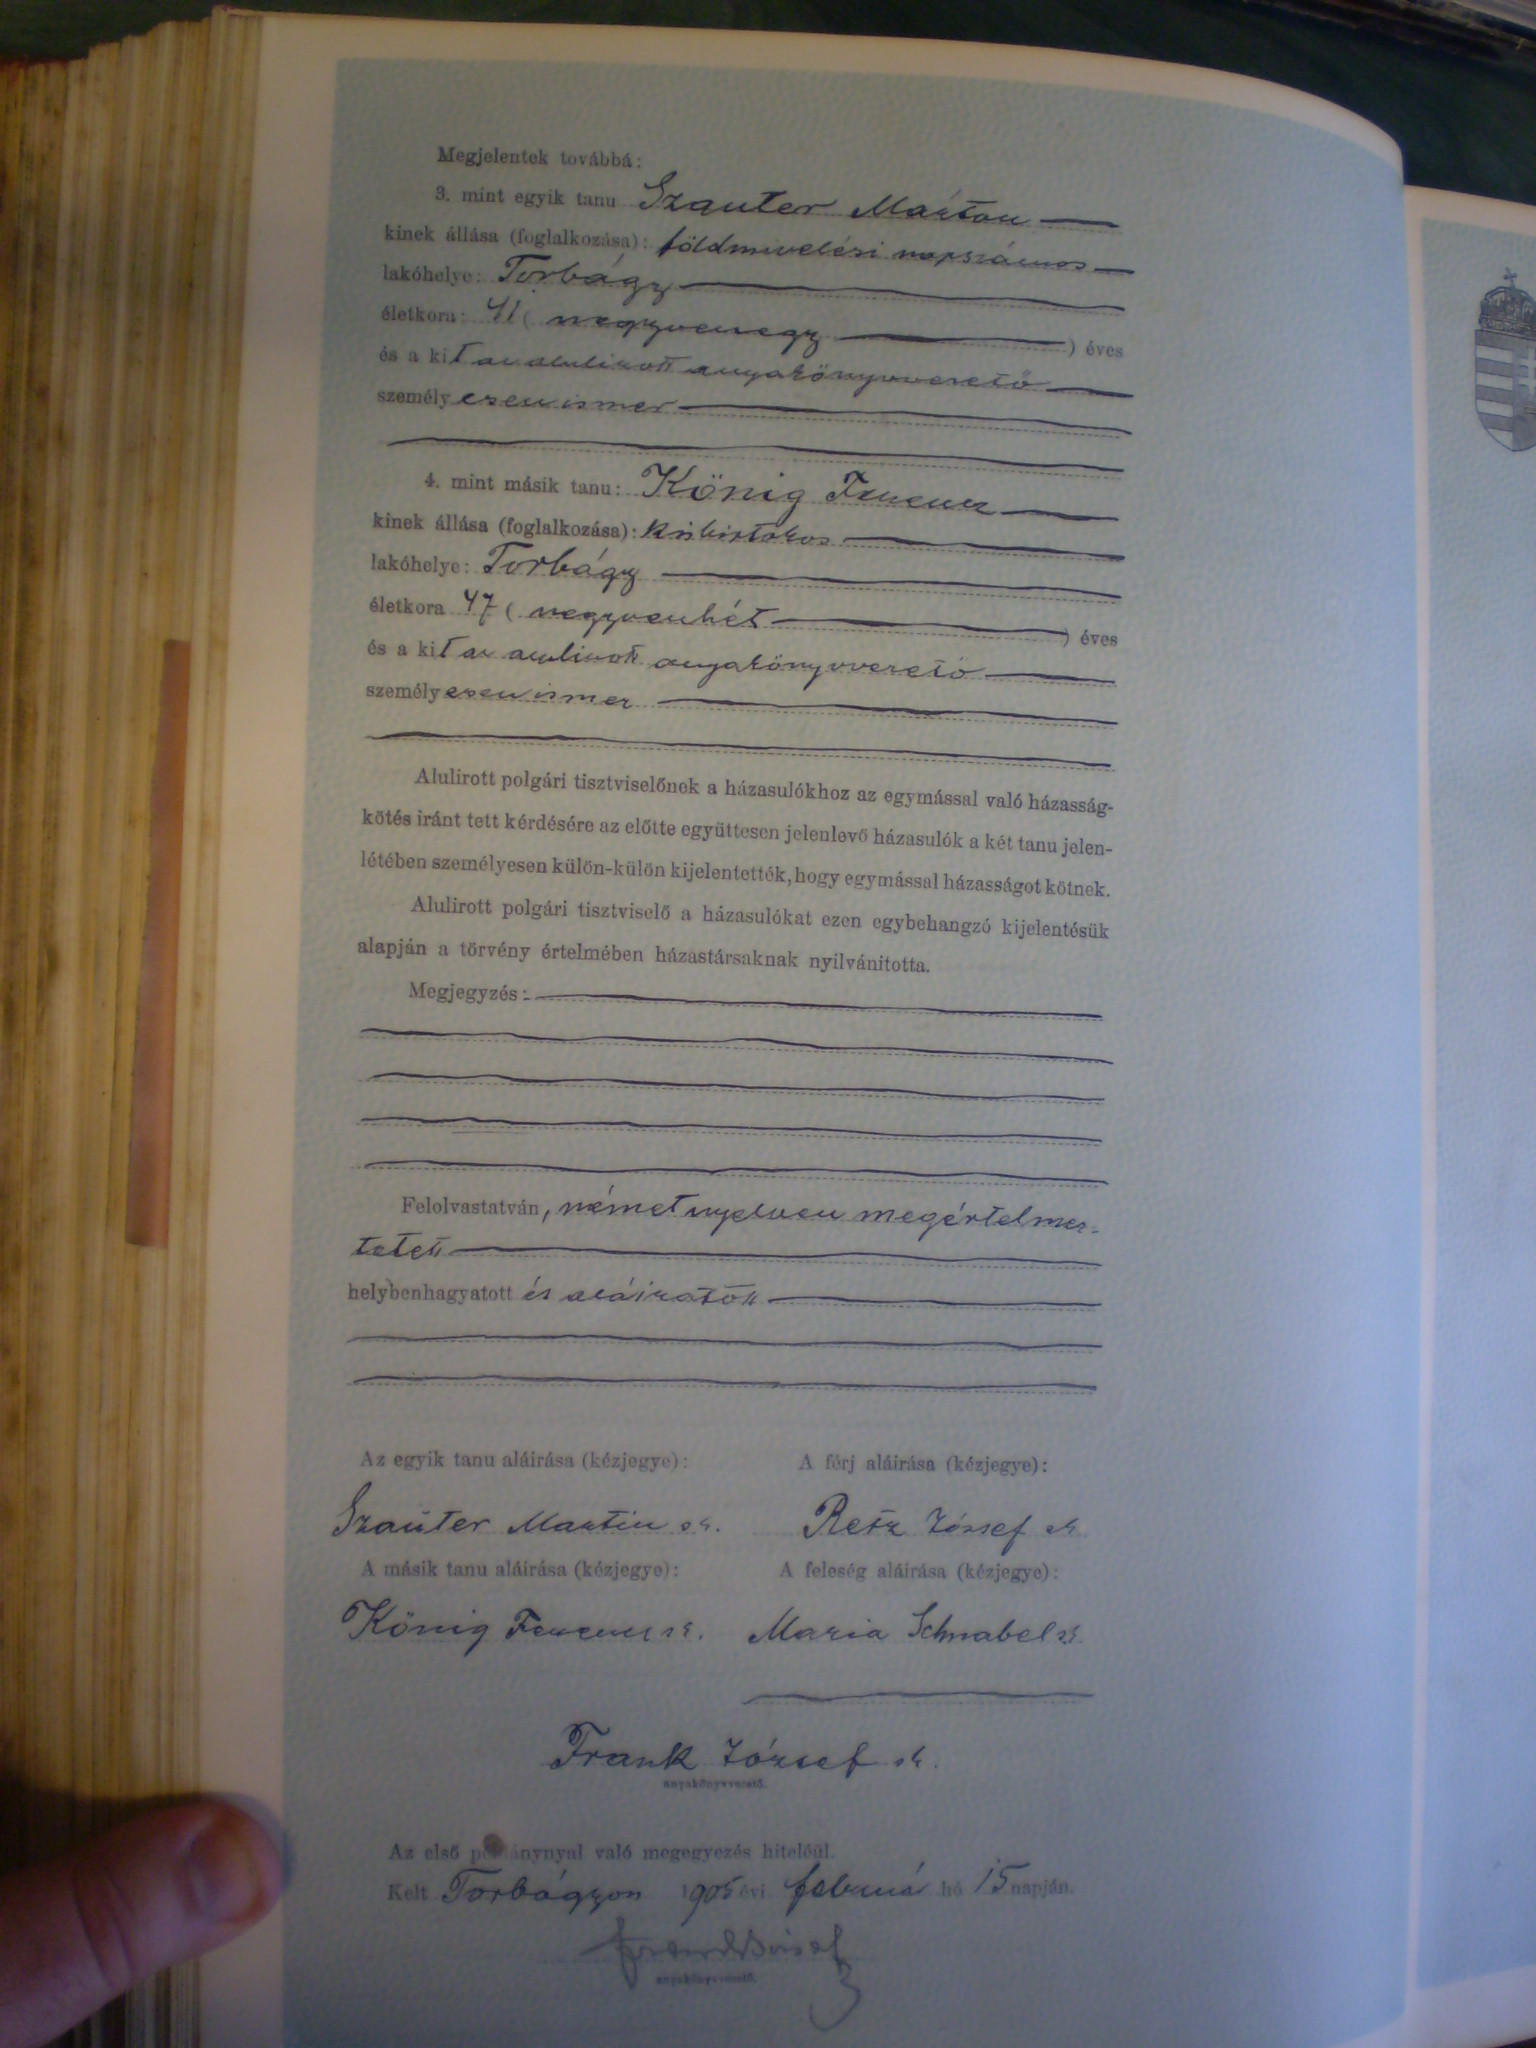 Megjelentek továbbá:
3. mint egyik tanu Szauter Márton
kinek állása (foglalkozása): földmivelési napszámos
lakóhelye: Torbágy
életkora: 41 ( negyvenegy ) éves
és a kit az alulirott anyakönyvvezető
személyesen ismer
4. mint másik tanu: König Ferencz
kinek állása (foglalkozása): kisbirtokos
lakóhelye: Torbágy
életkora 47 ( negyvenhét ) éves
és a kit az alulirott anyakönyvvezető
személyesen ismer
Alulirott polgári tisztviselőnek a házasulókhoz az egymással való házasság-
kötés iránt tett kérdésére az előtte együttesen jelenlevő házasulók a két tanu jelen-
létében személyesen külön-külön kijelentették, hogy egymással házasságot kötnek.
Alulirott polgári tisztviselő a házasulókat ezen egybehangzó kijelentésük
alapján a törvény értelmében házastársaknak nyilvánitotta.
Megjegyzés:
Felolvastatván, német nyelven megértelmez-
tetett
helybenhagyatott és aláiratott
Az egyik tanu aláirása (kézjegye): A férj aláirása (kézjegye):
Szauter Martin sk. Resz József sk
A másik tanu aláirása (kézjegye): A feleség aláirása (kézjegye):
König Ferencz sk. Maria Schnabel sk.
Frank József sk.
anyakönyvvezető.
Az első példánynyal való megegyezés hiteléül.
Kelt Torbágyon 1905 évi február hó 15 napján.
Frank József
anyakönyvvezető.